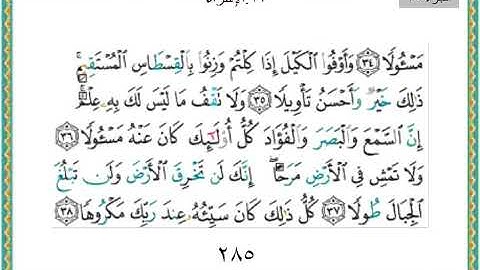 مَسْـُٔولًا ﴿٣٤﴾ وَأَوْفُوا۟ ٱلْكَيْلَ إِذَا كِلْتُمْ وَزِنُوا۟ بِٱلْقِسْطَاسِ ٱلْمُسْتَقِيمِ ۚ
ذَٰلِكَ خَيْرٌ وَأَحْسَنُ تَأْوِيلًا ﴿٣٥﴾ وَلَا تَقْفُ مَا لَيْسَ لَكَ بِهِۦ عِلْمٌ ۚ
إِنَّ ٱلسَّمْعَ وَٱلْبَصَرَ وَٱلْفُؤَادَ كُلُّ أُو۟لَٰٓئِكَ كَانَ عَنْهُ مَسْـُٔولًا ﴿٣٦﴾
وَلَا تَمْشِ فِى ٱلْأَرْضِ مَرَحًا ۖ إِنَّكَ لَن تَخْرِقَ ٱلْأَرْضَ وَلَن تَبْلُغَ
ٱلْجِبَالَ طُولًا ﴿٣٧﴾ كُلُّ ذَٰلِكَ كَانَ سَيِّئُهُۥ عِندَ رَبِّكَ مَكْرُوهًا ﴿٣٨﴾
٢٨٥